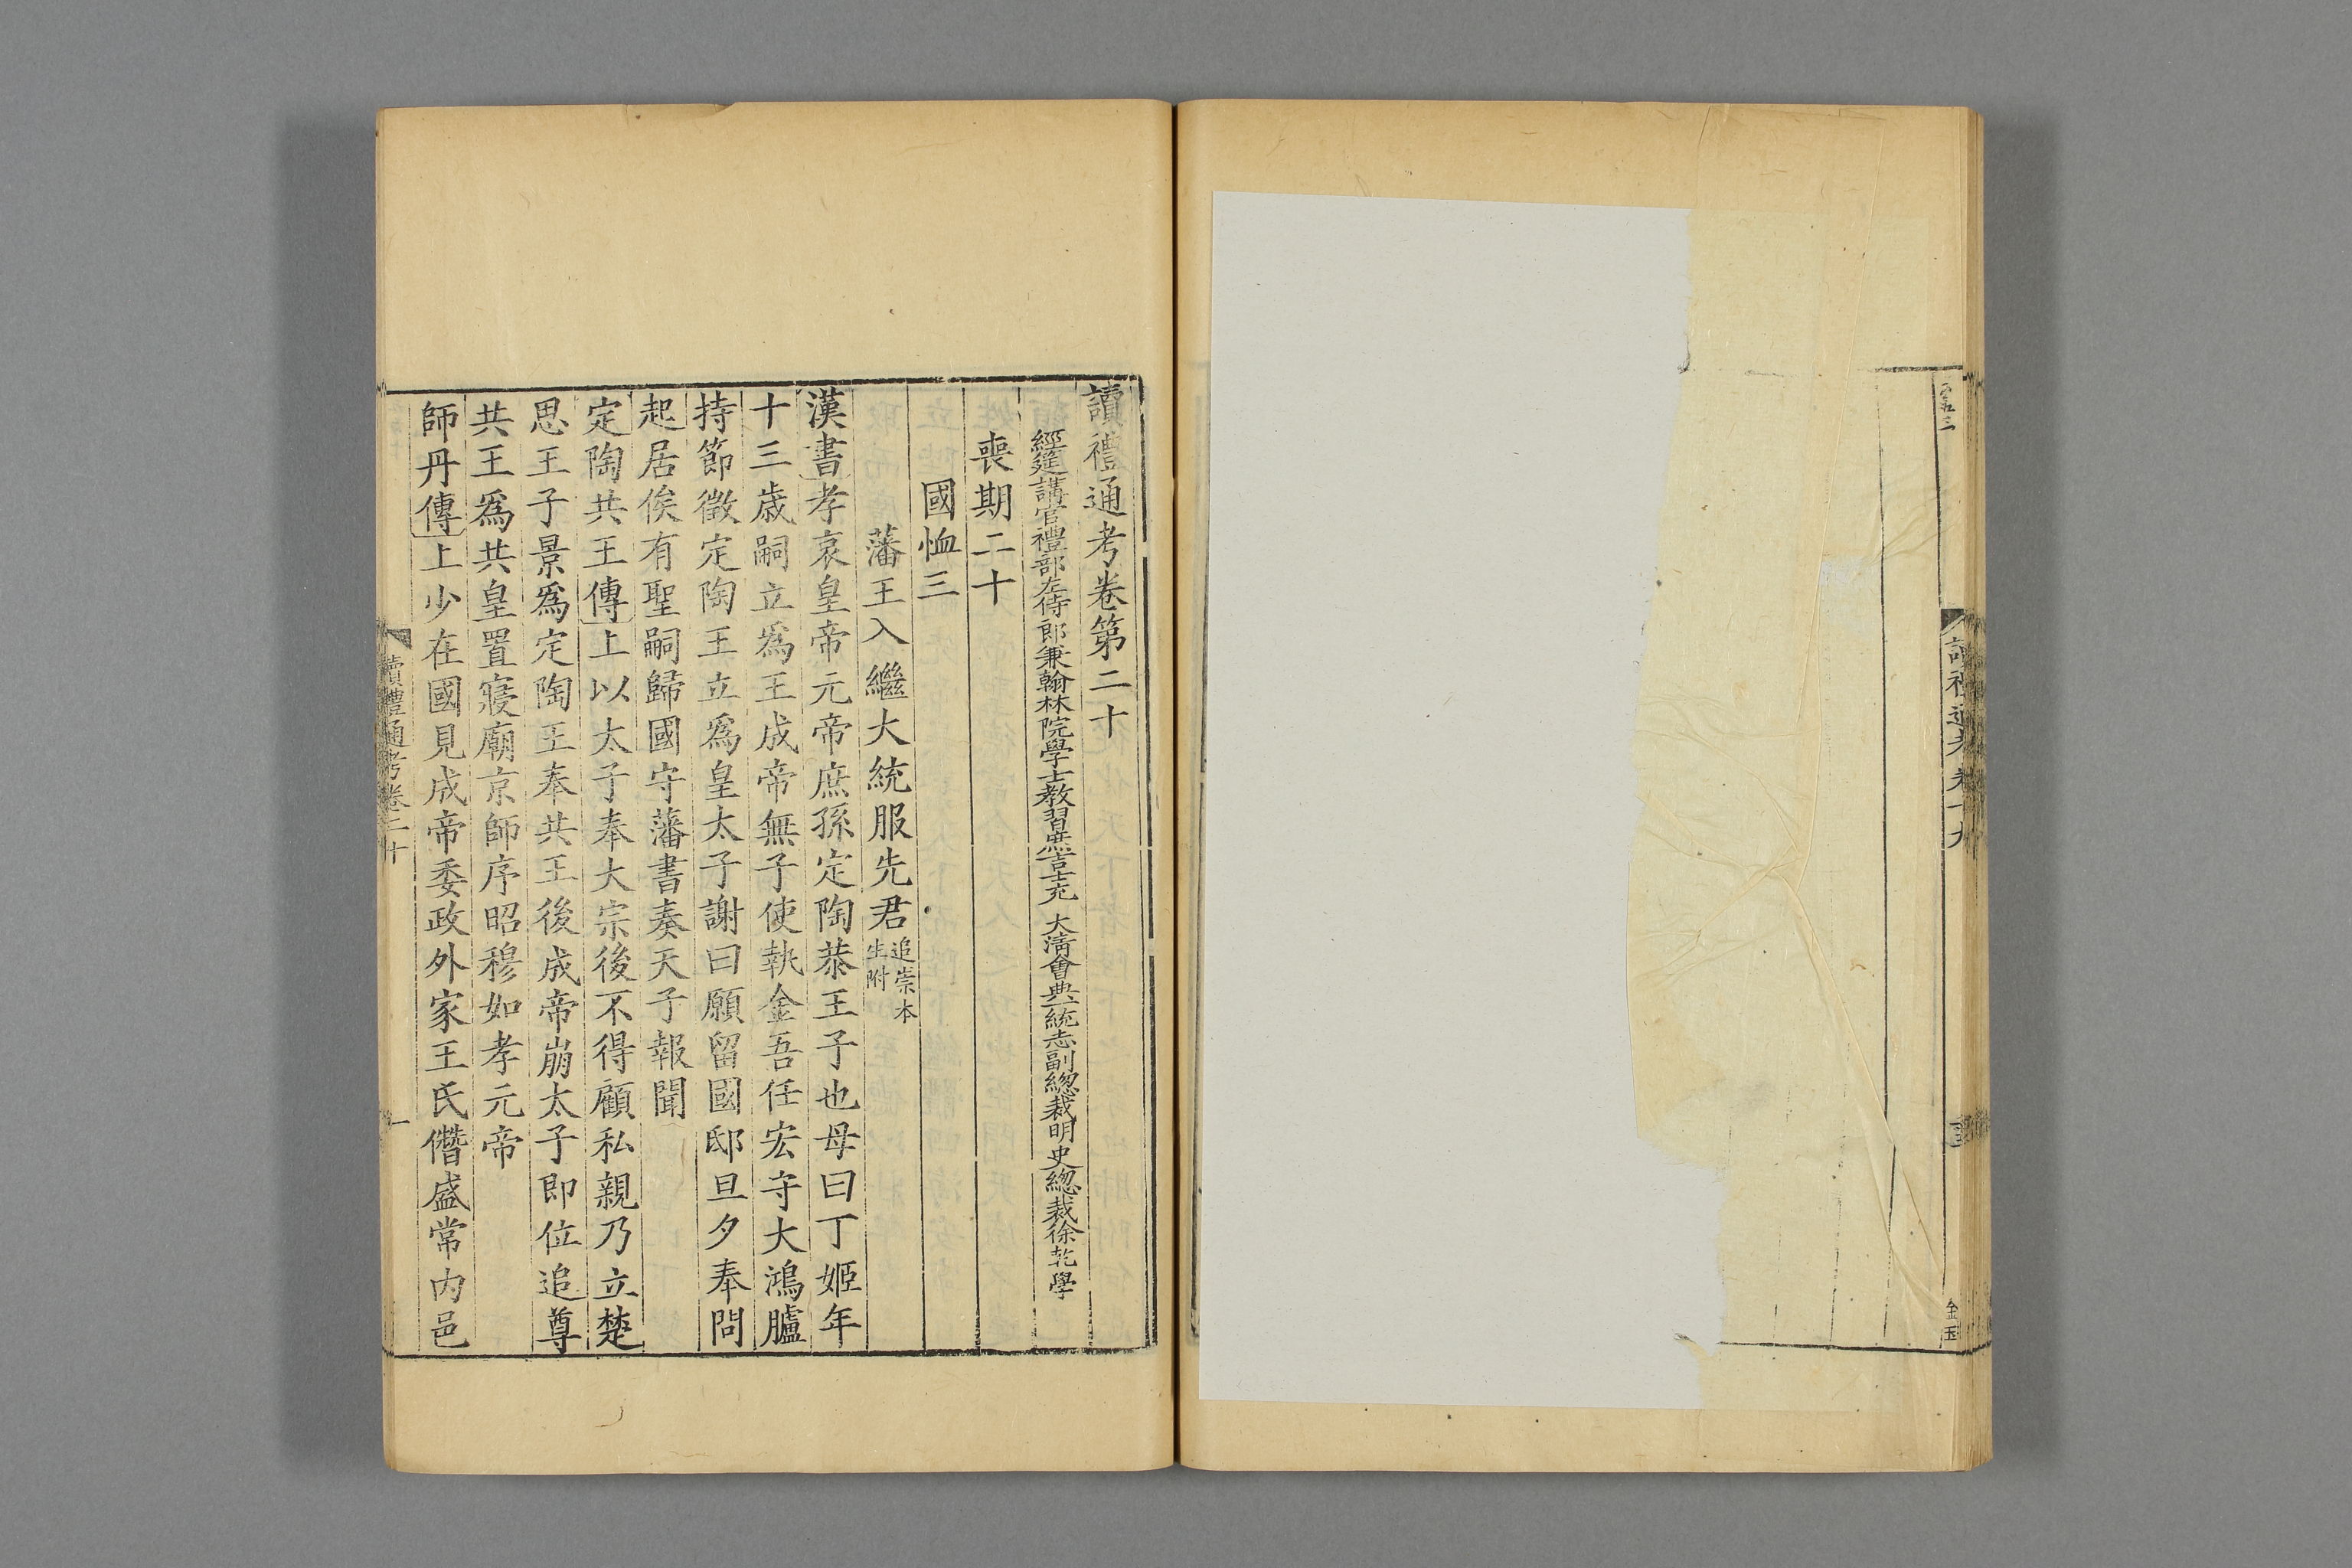 讀禮通考卷十九
金玉
讀禮通考卷第二十
經筵講官禮部左侍郎兼翰林院學士教習庶吉士充 大清會典一統志副總裁明史總裁徐乾學
喪期二十
國恤三
藩王入繼大統服先君追崇本生附
漢書孝哀皇帝元帝庶孫定陶恭王子也母曰丁姬年
十三歲嗣立爲王成帝無子使執金吾任宏守大鴻臚
持節徵定陶王立爲皇太子謝曰願留國邸旦夕奉問
起居俟有聖嗣歸國守藩書奏天子報聞
定陶共王傳上以太子奉大宗後不得顧私親乃立楚
思王子景爲定陶王奉共王後成帝崩太子即位追尊
共王爲共皇置寢廟京師序昭穆如孝元帝
師丹傳上少在國見成帝委政外家王氏僭盛常內邑
讀禮通考卷二十
一